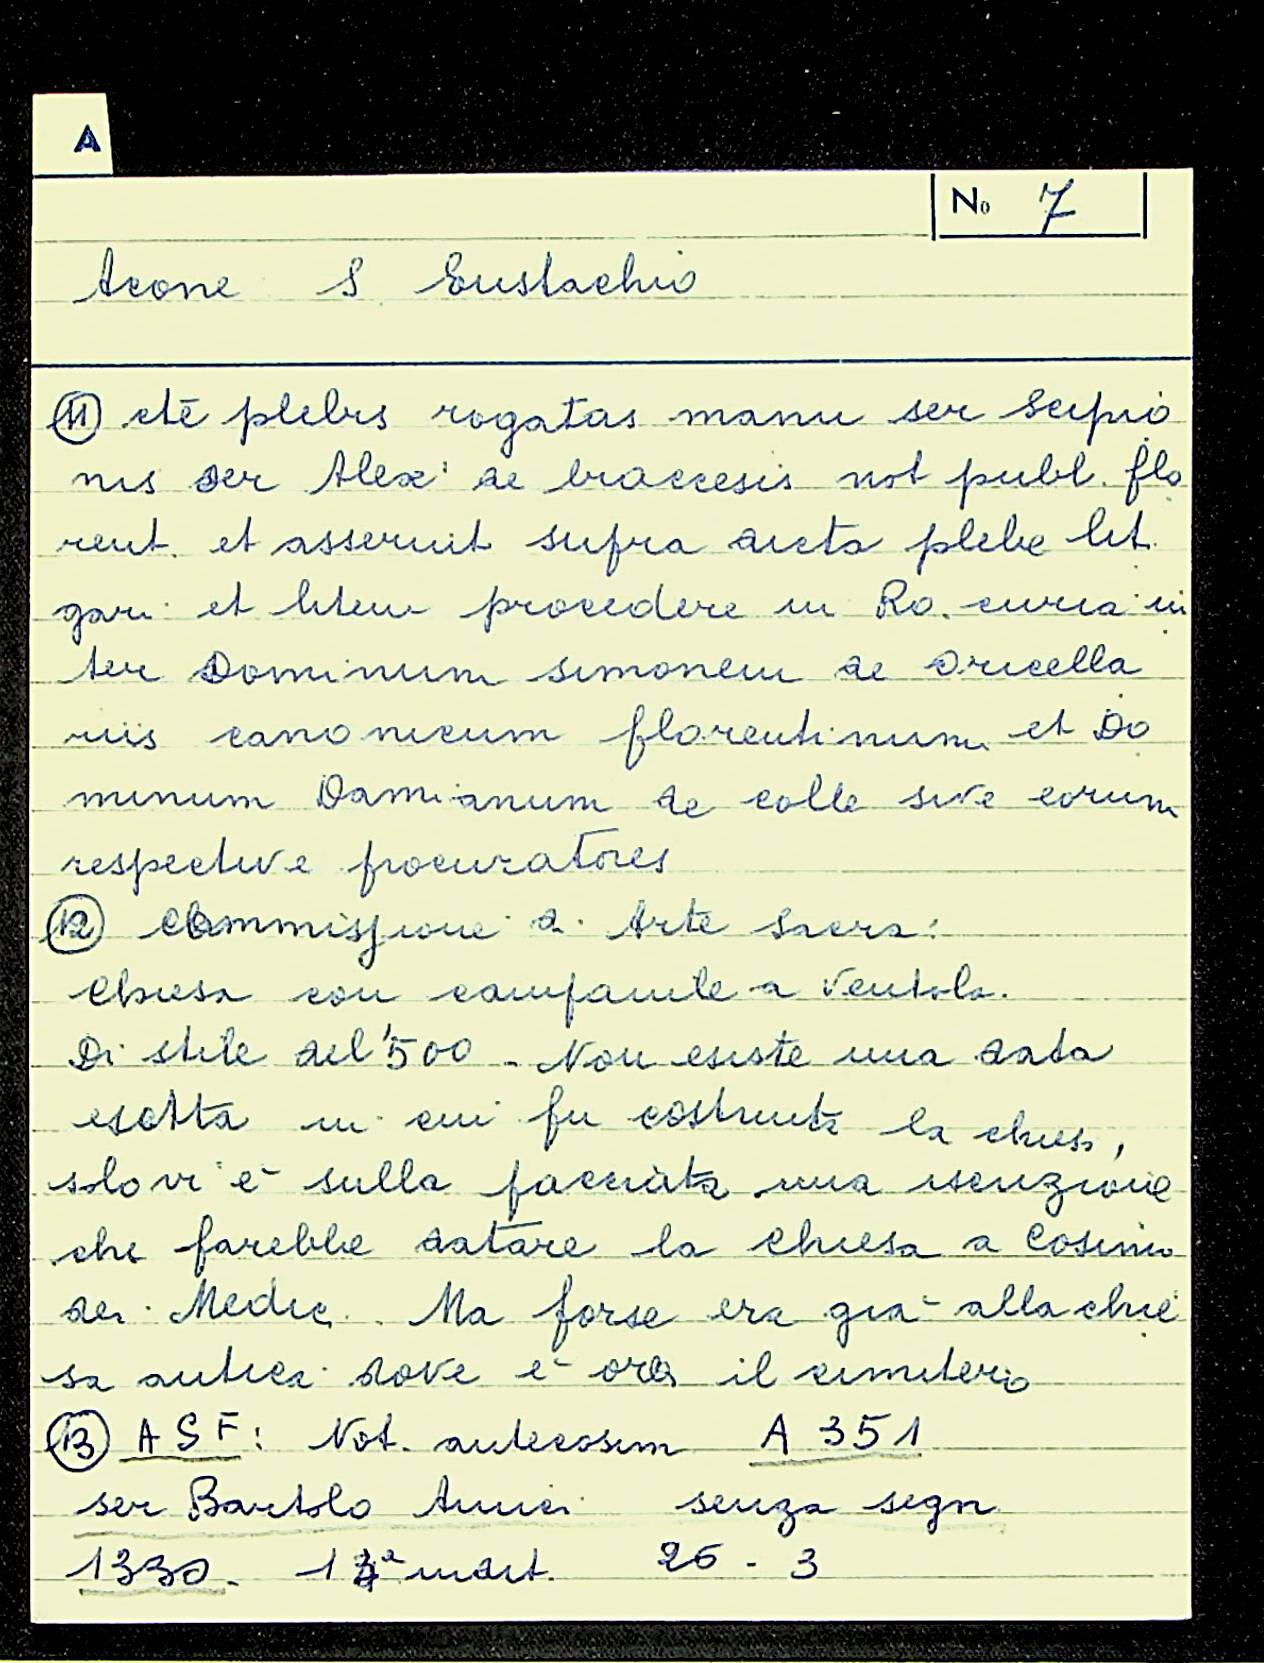 A
No 7
Acone S Eustachio
(11) ctē plebis rogatas manu ser Scipio
nis ser Alex: de braccesis not publ. flo
rent. et asseruit supra dicta plebe lit
gari et litem procedere in Ro. curia in
ter Dominum simonem de Oricella
riis canonicum florentinum et Do
minum Damianum de colle sive eorum
respective procuratores
(12) Commissione d. Arte Sacra:
Chiesa con campanile a ventola.
Di stile del '500 - Non esiste una data
esatta in cui fu costruita la chiesa,
solo vi è sulla facciata una iscrizione
che farebbe datare la chiesa a Cosimo
dei Medici. Ma forse era già alla chie
sa antica dove è ora il cimitero
(13) ASF: Not. antecosim A 351
ser Bartolo Amici senza segn
1330. 13ª indit. 26 - 3